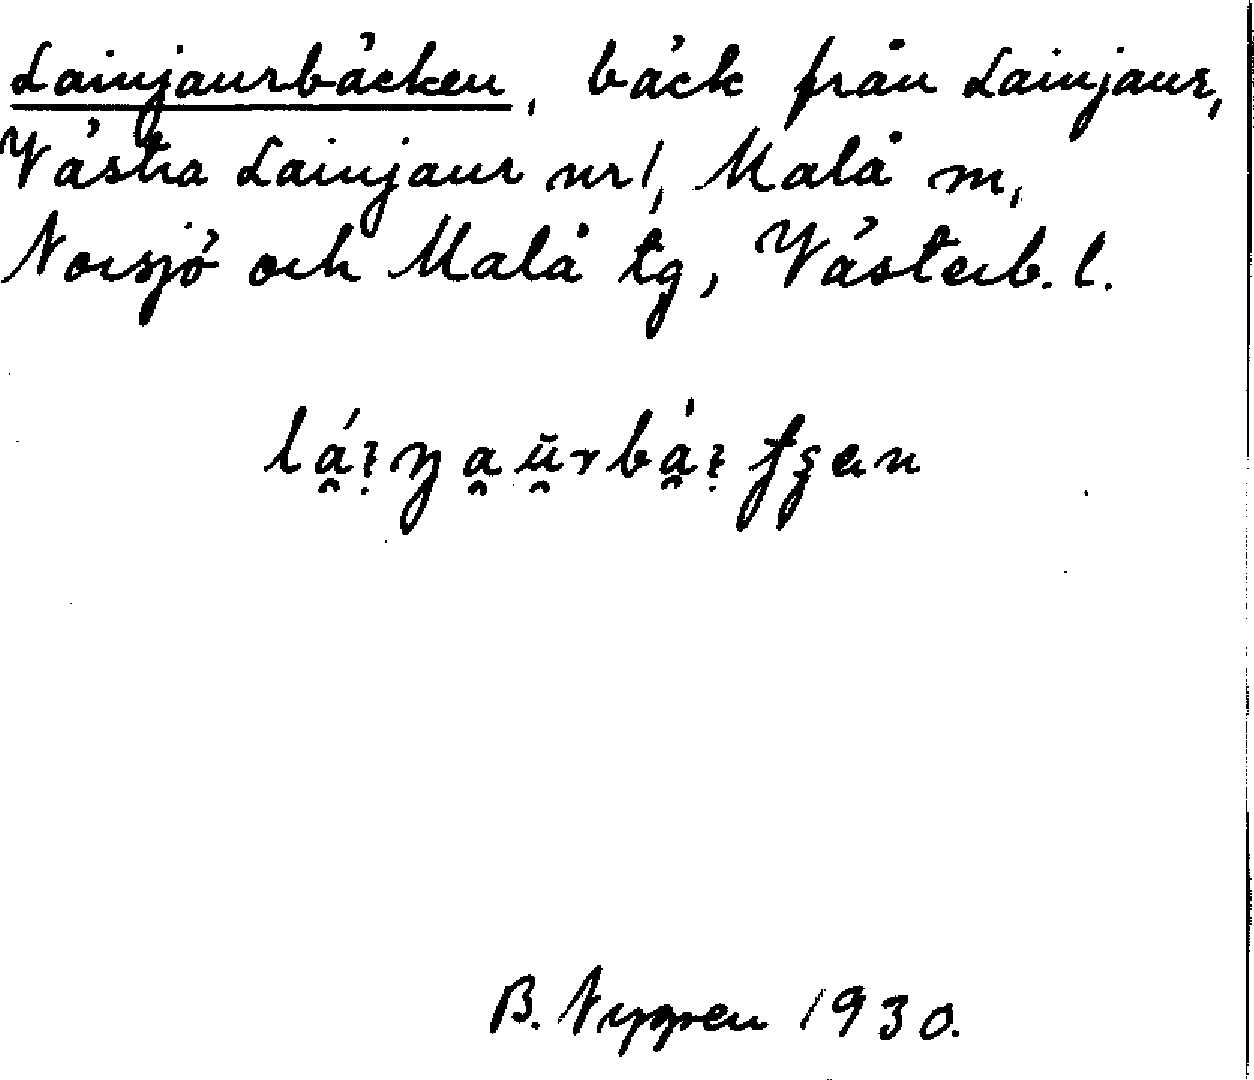 Lainjaurbäcken, bäck från Lainjaur,
Västra Lainjaur nr 1, Malå m,
Norsjö och Malå tg, Västerb. l.
B. Nygren 1930.